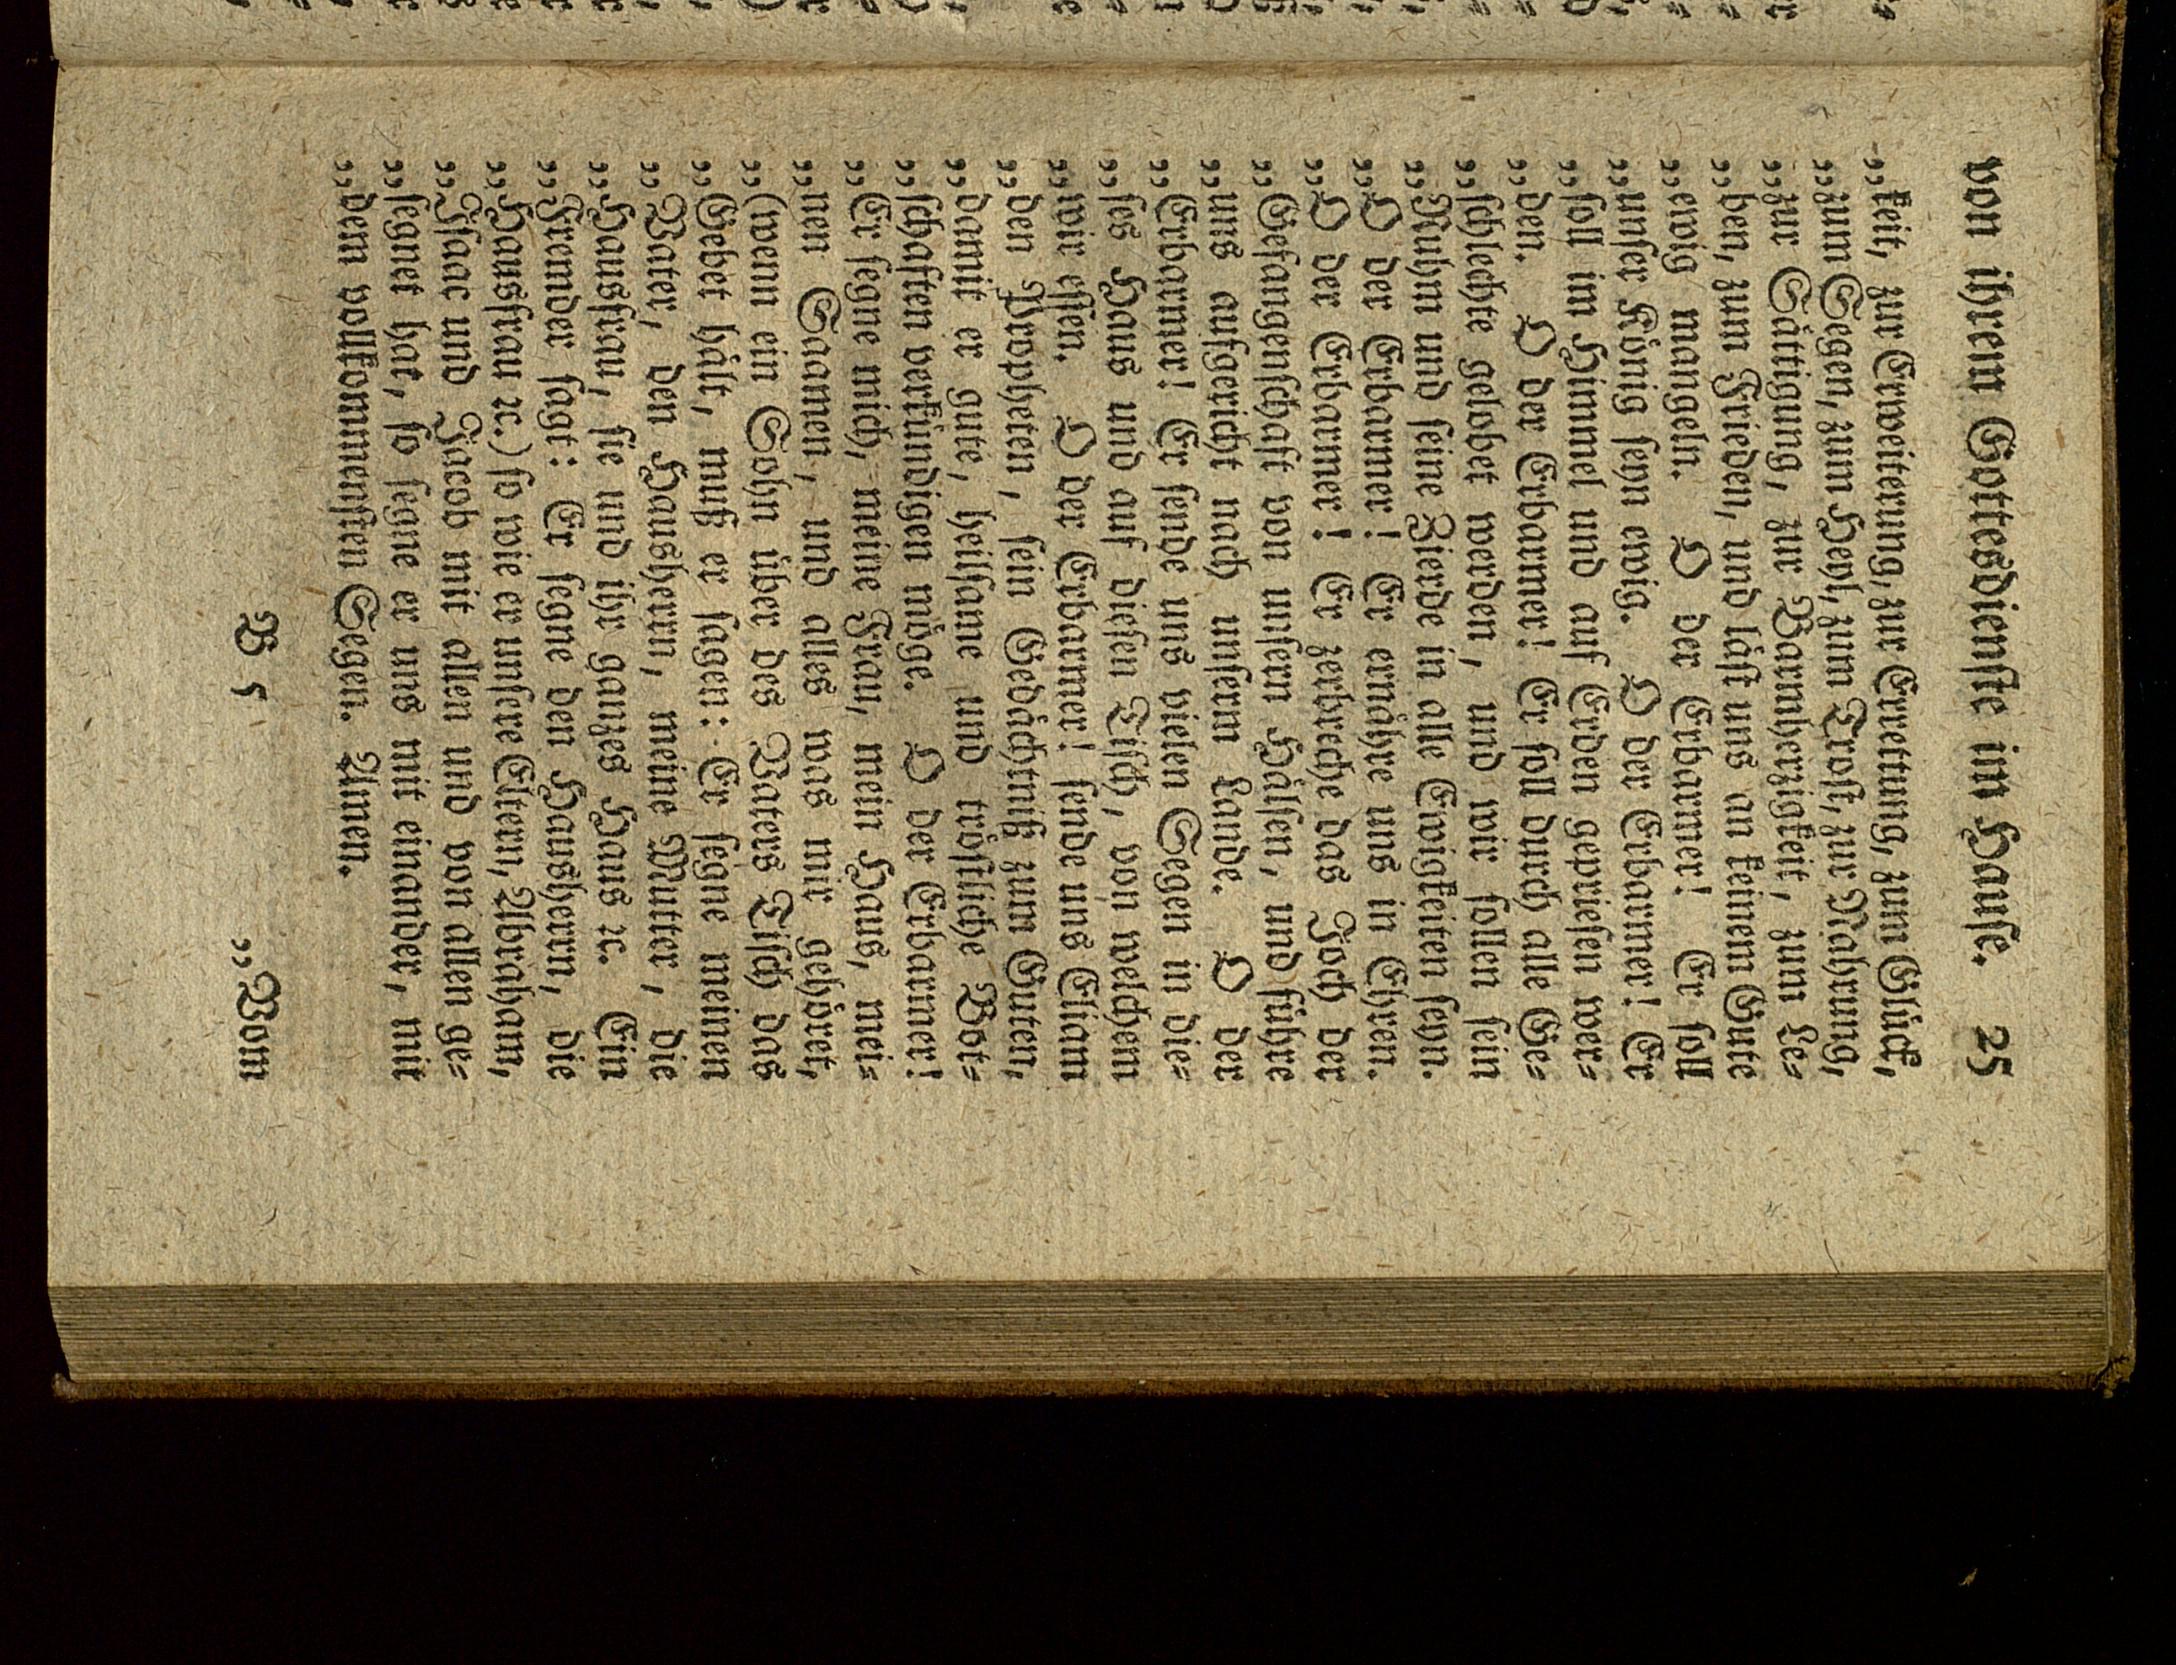 von ihrem Gottesdienste im Hause. 25
„keit, zur Erweiterung, zur Errettung, zum Glück,
„zum Segen, zum Heyl, zum Trost, zur Nahrung,
„zur Sättigung, zur Barmherzigkeit, zum Le⸗
„ben, zum Frieden, und läst uns an keinem Gute
„ewig mangeln. O der Erbarmer! Er soll
„unser König seyn ewig. O der Erbarmer! Er
„soll im Himmel und auf Erden gepriesen wer⸗
„den. O der Erbarmer! Er soll durch alle Ge⸗
„schlechte gelobet werden, und wir sollen sein
„Ruhm und seine Zierde in alle Ewigkeiten seyn.
„O der Erbarmer! Er ernähre uns in Ehren.
„O der Erbarmer! Er zerbreche das Joch der
„Gefangenschaft von unsern Hälsen, und führe
„uns aufgericht nach unserm Lande. O der
„Erbarmer! Er sende uns vielen Segen in die⸗
„ses Haus und auf diesen Tisch, von welchem
„wir essen. O der Erbarmer! sende uns Eliam
„den Propheten, sein Gedächtniß zum Guten,
„damit er gute, heilsame und tröstliche Bot⸗
„schaften verkündigen möge. O der Erbarmer!
„Er segne mich, meine Frau, mein Haus, mei⸗
„nen Saamen, und alles was mir gehöret,
„(wenn ein Sohn über des Vaters Tisch das
„Gebet hält, muß er sagen: Er segne meinen
„Vater, den Hausherrn, meine Mutter, die
„Hausfrau, sie und ihr ganzes Haus ꝛc. Ein
„Fremder sagt: Er segne den Hausherrn, die
„Hausfrau ꝛc.) so wie er unsere Eltern, Abraham,
„Isaac und Jacob mit allen und von allen ge⸗
„segnet hat, so segne er uns mit einander, mit
„dem vollkommensten Segen. Amen.
B 5 „Vom